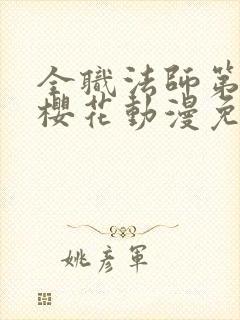 全職法師第
櫻花動漫免
姚彥軍